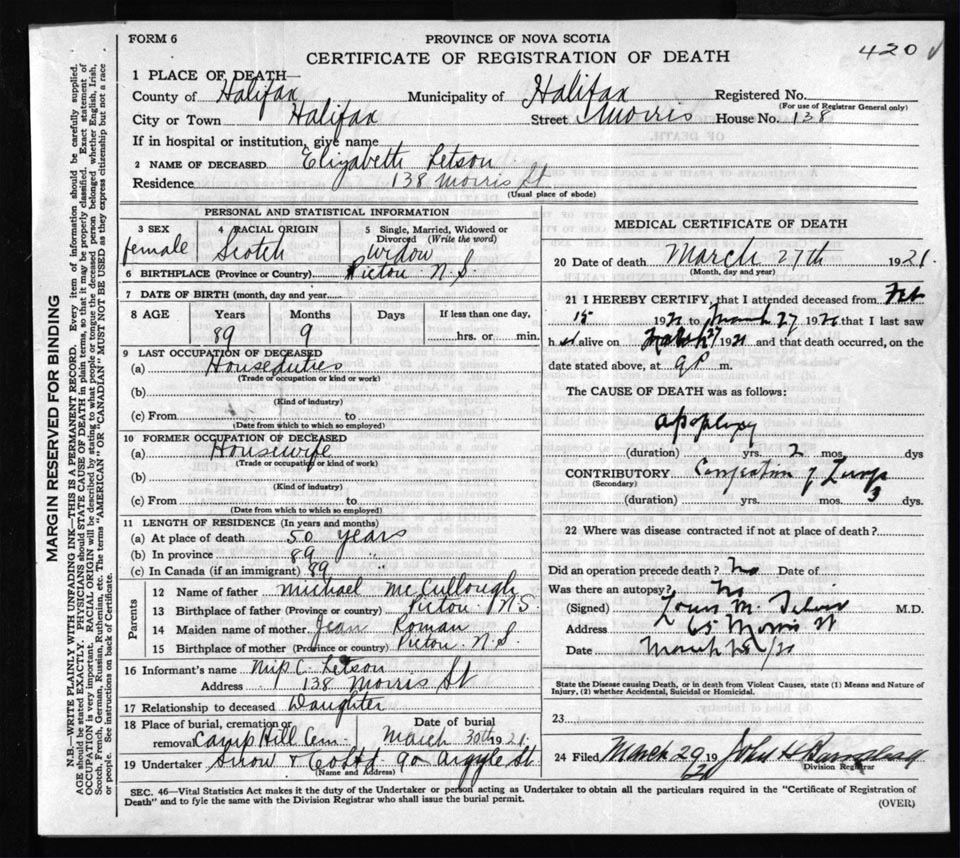 FORM 6
PROVINCE OF NOVA SCOTIA
420 √
CERTIFICATE OF REGISTRATION OF DEATH
1 PLACE OF DEATH—
County of Halifax Municipality of Halifax Registered No.
(For use of Registrar General only)
City or Town Halifax Street Morris House No. 138
If in hospital or institution, give name
2 NAME OF DECEASED Elizabeth Letson
Residence 138 Morris St
(Usual place of abode)
PERSONAL AND STATISTICAL INFORMATION
3 SEX 4 RACIAL ORIGIN 5 Single, Married, Widowed or Divorced (Write the word)
female Scotch Widow
6 BIRTHPLACE (Province or Country) Pictou N.S.
7 DATE OF BIRTH (month, day and year)
8 AGE Years Months Days If less than one day,
89 9 hrs. or min.
9 LAST OCCUPATION OF DECEASED
(a) Houseduties
(Trade or occupation or kind or work)
(b)
(Kind of industry)
(c) From to
(Date from which to which so employed)
10 FORMER OCCUPATION OF DECEASED
(a) Housewife
(Trade or occupation or kind of work)
(b)
(Kind of industry)
(c) From to
(Date from which to which so employed)
11 LENGTH OF RESIDENCE (In years and months)
(a) At place of death 50 years
(b) In province 89 "
(c) In Canada (if an immigrant) 89 "
Parents
12 Name of father Michael McCullough
13 Birthplace of father (Province or country) Pictou N.S.
14 Maiden name of mother Jean Roman
15 Birthplace of mother (Province or country) Pictou N.S.
16 Informant's name Miss C. Letson
Address 138 Morris St
17 Relationship to deceased Daughter
18 Place of burial, cremation or removal Camp Hill Cem. Date of burial March 30th 1921
19 Undertaker Snow & Co Ltd 90 Argyle St
(Name and Address)
MEDICAL CERTIFICATE OF DEATH
20 Date of death March 27th 1921.
(Month, day and year)
21 I HEREBY CERTIFY, that I attended deceased from Feb
15 19 to March 27 19 that I last saw
h alive on March 27 19 and that death occurred, on the
date stated above, at 9 P m.
The CAUSE OF DEATH was as follows:
apoplexy
(duration) yrs. 2 mos. dys
CONTRIBUTORY Congestion of Lungs
(Secondary)
(duration) yrs. mos. 3 dys.
22 Where was disease contracted if not at place of death?
Did an operation precede death? No Date of
Was there an autopsy? No
(Signed) Louis M. M.D.
Address 65 Morris St
Date March
State the Disease causing Death, or in death from Violent Causes, state (1) Means and Nature of
Injury, (2) whether Accidental, Suicidal or Homicidal.
23
24 Filed March 29 19 John H
Division Registrar
SEC. 46—Vital Statistics Act makes it the duty of the Undertaker or person acting as Undertaker to obtain all the particulars required in the "Certificate of Registration of
Death" and to fyle the same with the Division Registrar who shall issue the burial permit.
(OVER)
MARGIN RESERVED FOR BINDING
N.B.—WRITE PLAINLY WITH UNFADING INK—THIS IS A PERMANENT RECORD. Every item of information should be carefully supplied.
AGE should be stated EXACTLY. PHYSICIANS should STATE CAUSE OF DEATH in plain terms, so that it may be properly classified. Exact statement of
OCCUPATION is very important. RACIAL ORIGIN will be described by stating to what people or tongue the deceased person belonged, whether English, Irish,
Scotch, French, German, Russian, Ruthenian, etc. The terms "AMERICAN" OR "CANADIAN" MUST NOT BE USED as they express citizenship but not a race
or people. See instructions on back of Certificate.